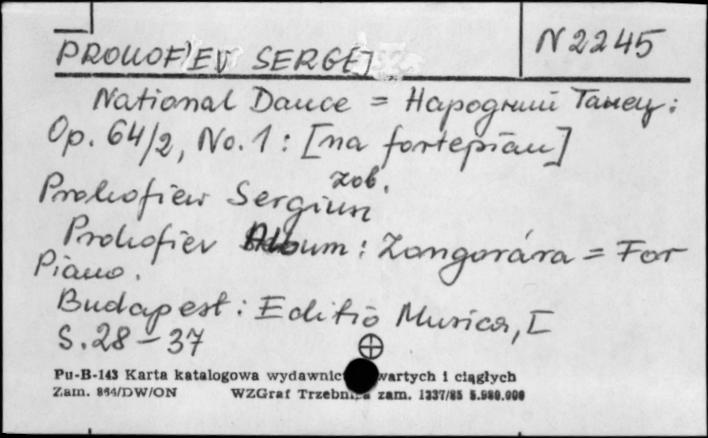 PROKOF'EV SERGEJ
N 2245
National Dance = Народный Танец:
Op. 64/2, No. 1 : [na fortepian]
zob.
Prokofiew Sergiusz
Prokofiev Album : Zongorára = For
Piano.
Budapest : Editio Musica, [
S. 28 - 37
Pu-B-143 Karta katalogowa wydawnic wartych i ciągłych
Zam. 864/DW/ON WZGraf Trzebnica zam. 1337/85 5.980.000